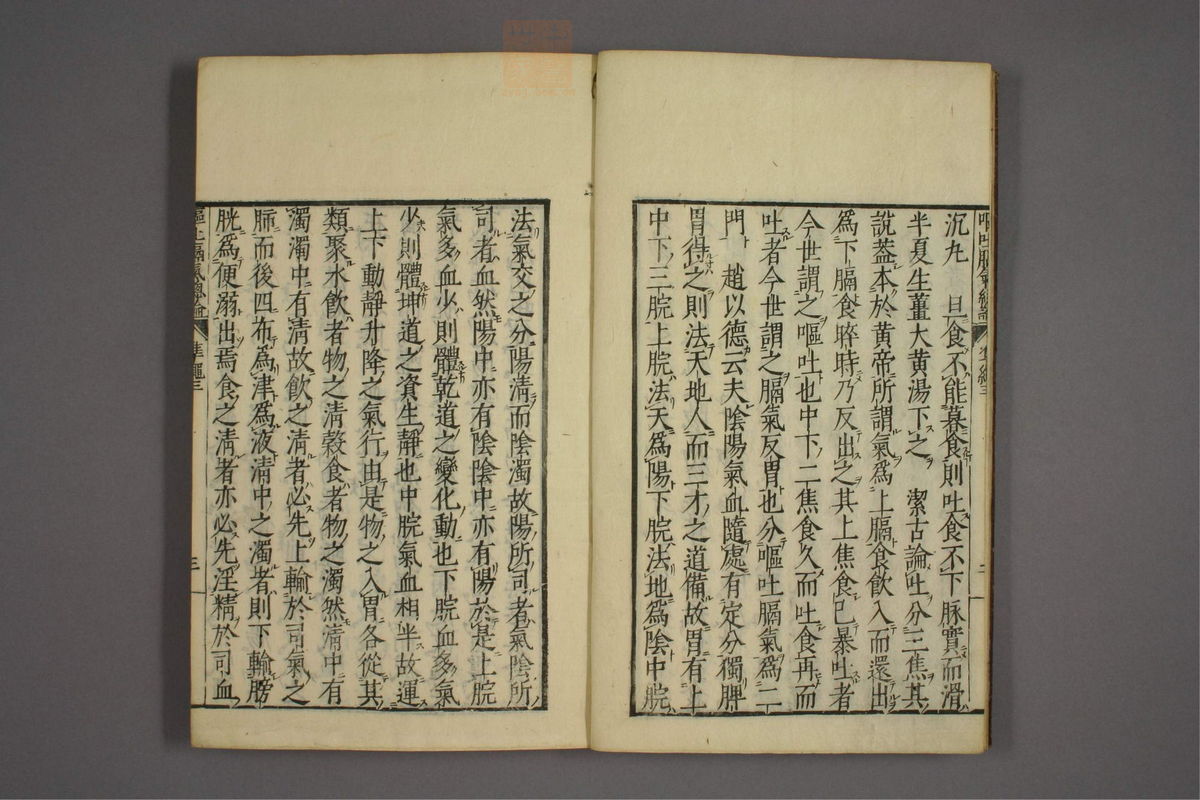 沉丸　旦食不能暮食則吐食不下脉實而滑
半夏生薑大黄湯下之　潔古論吐分三焦其
說蓋本於黄帝所謂氣爲上膈食飲入而還出
爲下膈食晬時乃反出之其上焦食已暴吐者
今世謂之嘔吐也中下二焦食久而吐食再而
吐者今世謂之膈氣反胃也分嘔吐膈氣爲二
門　趙以德云夫陰陽氣血隨處有定分獨脾
胃得之則法天地人而三才之道備故胃有上
中下三脘上脘法天爲陽下脘法地爲陰中脘
法氣交之分陽清而陰濁故陽所司者氣陰所
司者血然陽中亦有陰陰中亦有陽於是上脘
氣多血少則體乾道之變化動也下脘血多氣
少則體坤道之資生靜也中脘氣血相半故運
上下動靜升降之氣行由是物之入胃各從其
類聚水飲者物之清穀食者物之濁然清中有
濁濁中有清故飲之清者必先上輸於司氣之
肺而後四布為津爲液清中之濁者則下輸膀
胱爲便溺出焉食之清者亦必先淫精於司血
嘔吐膈氣總論　準繩三　三